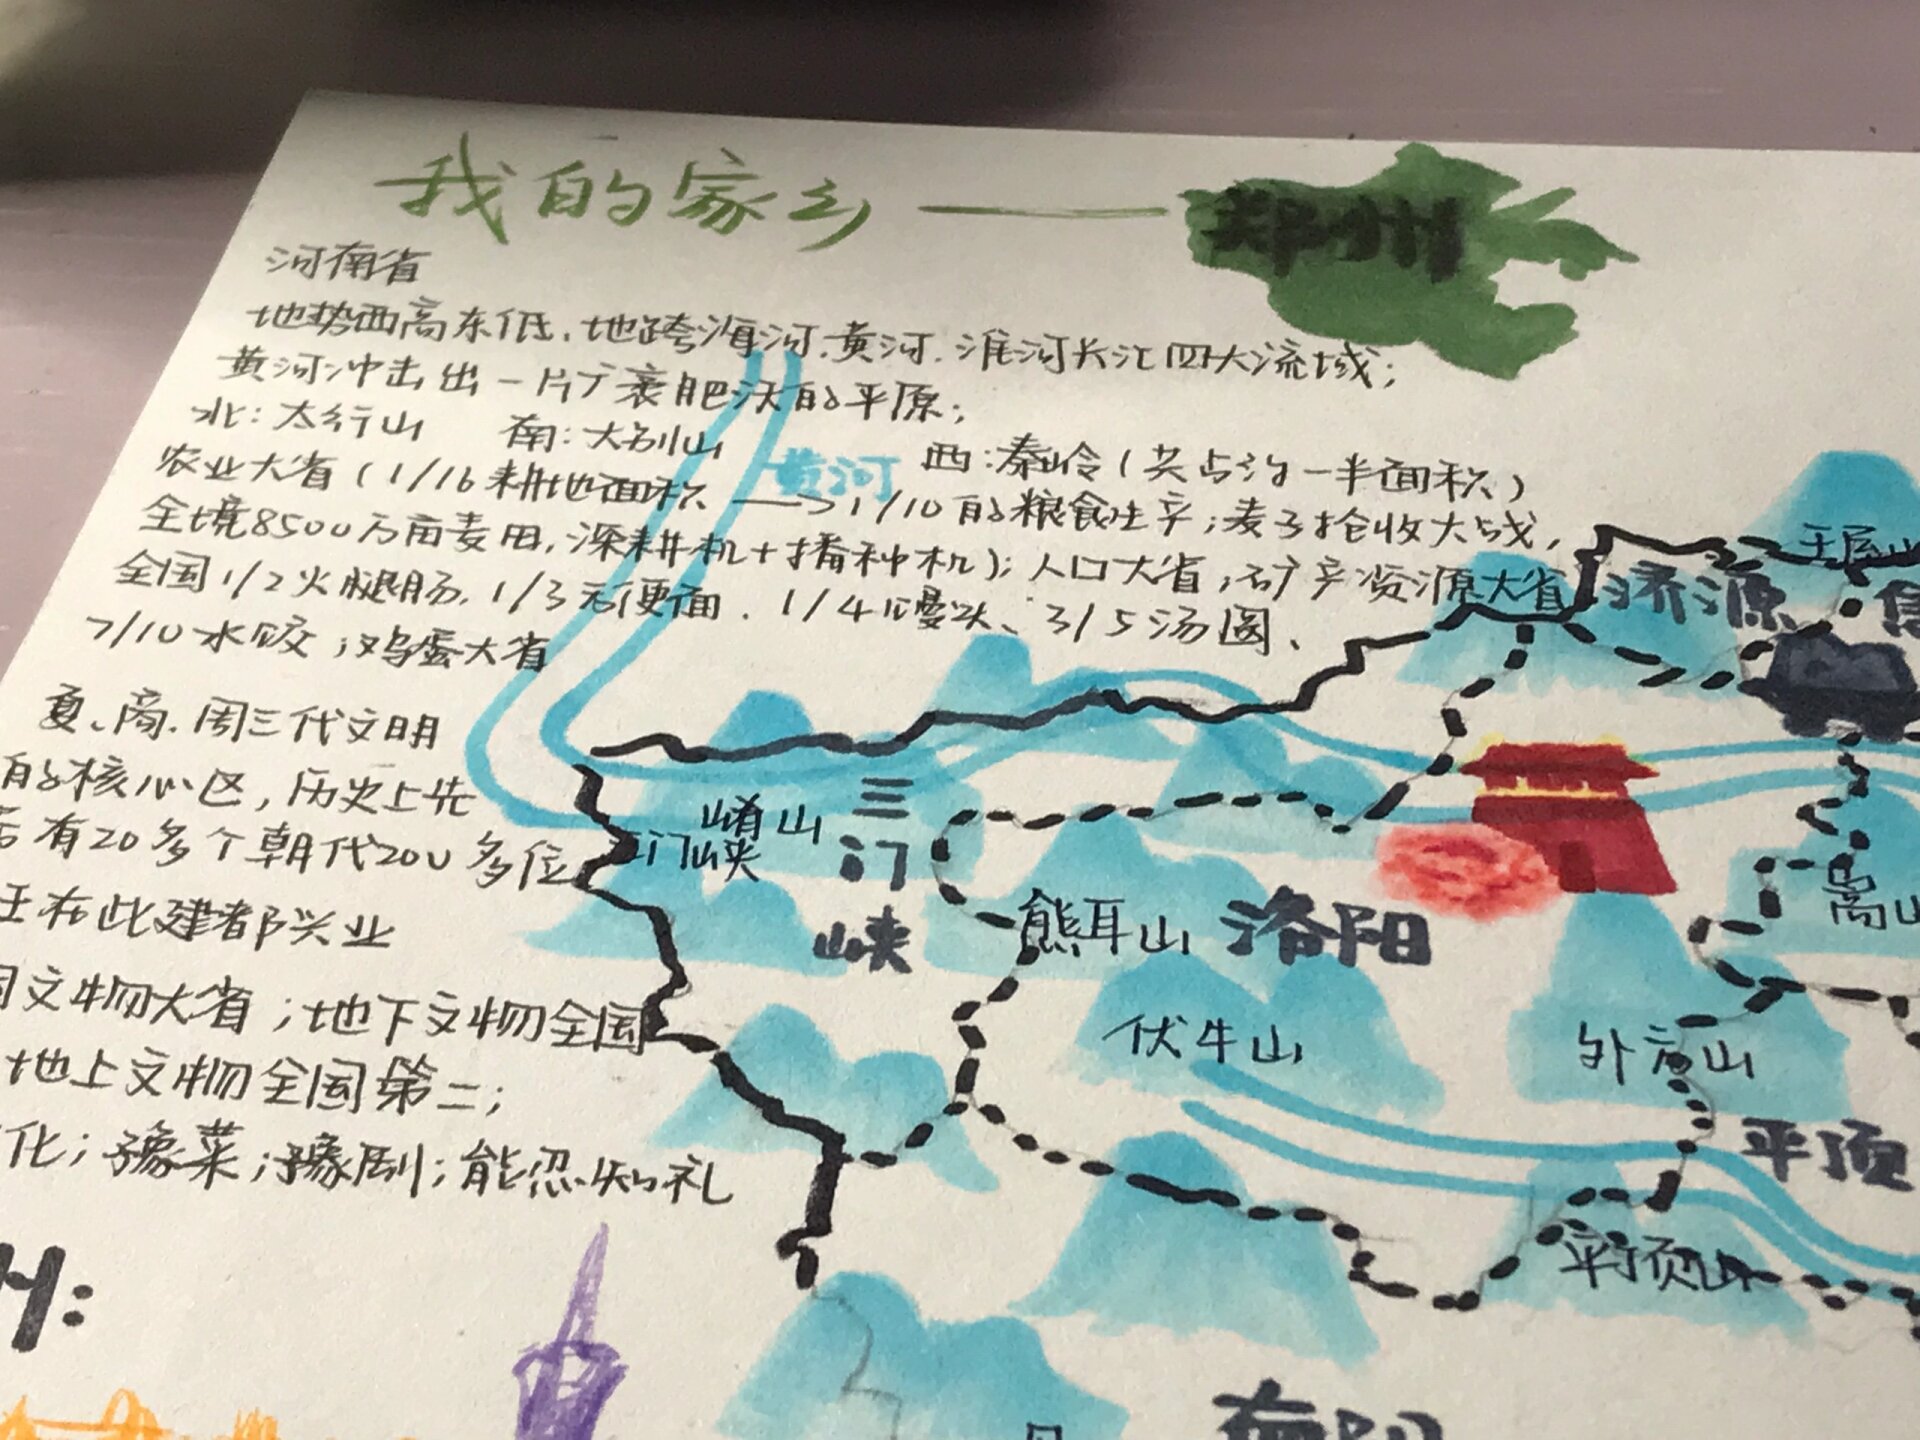 我的家乡——郑州
河南省
地势西高东低、地跨海河、黄河、淮河长江四大流域；
黄河冲击出一片广袤肥沃的平原；
北：太行山 南：大别山 西：秦岭（共占约一半面积）
黄河
农业大省（1/16耕地面积——>1/10的粮食生产；麦子抢收大战，
全境8500万亩麦田，深耕机+播种机）；人口大省；矿产资源大省
全国1/2火腿肠、1/3方便面、1/4馒头、3/5汤圆、
7/10水饺；鸡蛋大省
夏、商、周三代文明
的核心区，历史上先
后有20多个朝代200多位
王在此建都兴业
文物大省；地下文物全国
地上文物全国第二；
化；豫菜；豫剧；能忍知礼
王屋山
济源
崤山
三门峡
三门峡
熊耳山
洛阳
嵩山
伏牛山
外方山
平顶
平顶山
南阳